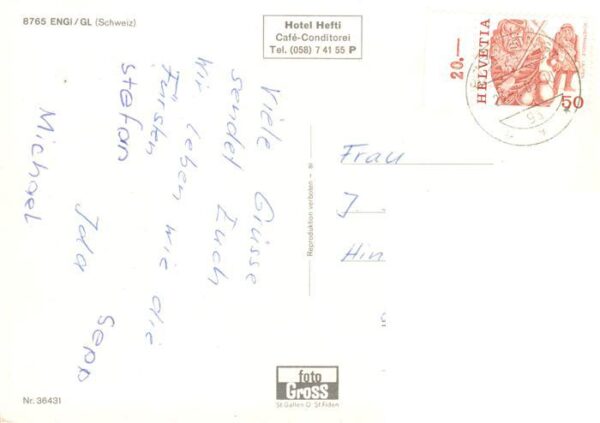 8765 ENGI/GL (Schweiz)
Hotel Hefti
Café-Conditorei
Tel. (058) 7 41 55 P
20.—
HELVETIA
50
Viele Grüsse
sendet Euch
Wir leben wie die
Fürsten
Stefan
Ida Sepp
Michael
Reproduktion verboten – si
Frau
J.
Hin
foto
Gross
St.Gallen O St.Fiden
Nr. 36431